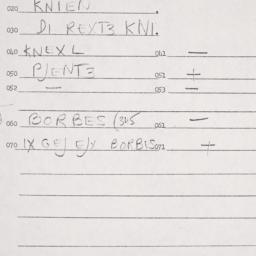 020 KNIEN .
030 DI REXT3 KNI.
040 KNEXL 041 —
050 PJENT3 051 +
052 — 053 —
060 BORBES (345 061 —
070 IX GEJ EJX BORBIS 071 +